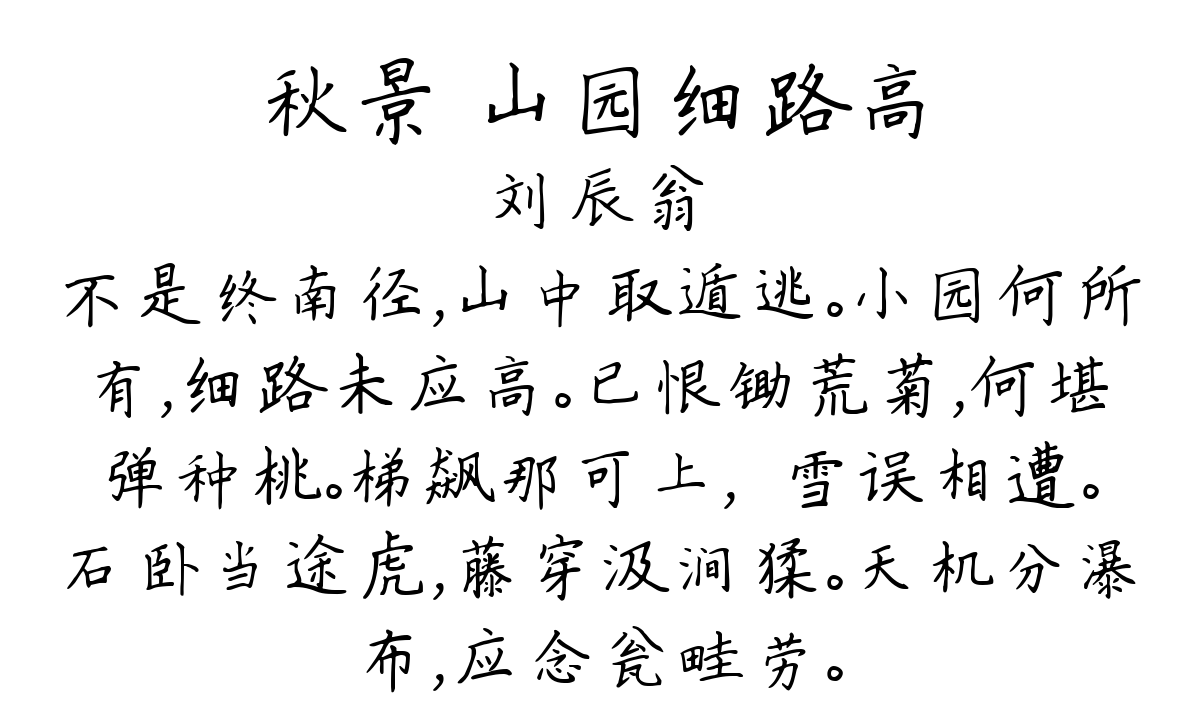 秋景 山园细路高
刘辰翁
不是终南径,山中取遁逃。小园何所
有,细路未应高。已恨锄荒菊,何堪
弹种桃。梯飙那可上，雪误相遭。
石卧当途虎,藤穿汲涧猱。天机分瀑
布,应念瓮畦劳。